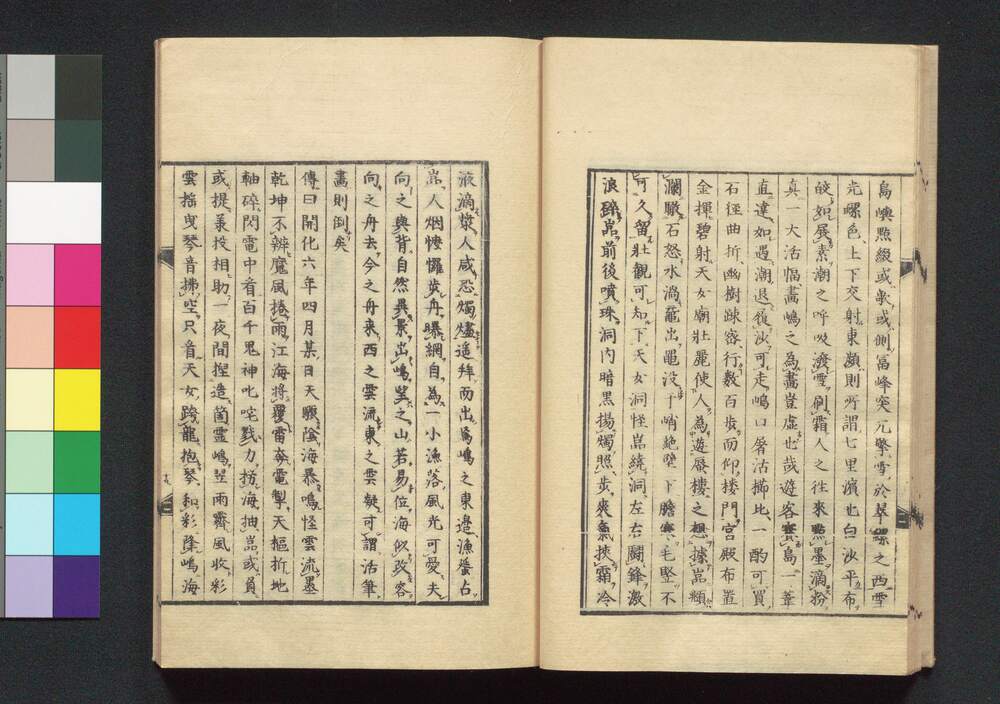 島嶼點綴或歌或側冨峰突兀擎雪於翠螺之西雪
光螺色上下交射東瀕則所謂七里濱也白沙平布
皎如展素潮之呼吸潑雪刷霜人之往來點墨滴粉
真一大活幅畵嶋之為畵豈虚也哉遊客賽島一葦
直達如遇潮退徒沙可走嶋口屠沽櫛比一酌可買
石徑曲折幽樹疎密行數百歩而仰楼門宮殿布置
金揮碧射天女廟壯麗使人為遊蜃樓之想據嵓頬
瀾轍石怒水渦竈出黽没于峭絶壁下膽寒毛竪不
可久留壯觀可知下天女洞怪嵓繞洞左右鬪鋒激
浪碎嵓前後噴珠洞内暗黒揚燭照歩爽氣挾霜冷
液滴漿人咸恐燭燼遥拜而出焉嶋之東邉漁蜑占
嵓人烟㦗㦬歩舟曝網自為一小漁落風光可愛夫
向之與背自然異景出嶋望之山若易位海似改容
向之舟去今之舟来西之雲流東之雲凝可謂活筆
畵則倒矣
傳曰開化六年四月某日天驟陰海暴鳴怪雲流墨
乾坤不辨魔風捲雨江海將覆雷奔電掣天樞折地
軸碎閃電中看百千鬼神叱咤戮力撈海抽嵓或負
或提兼投相助一夜間捏造箇靈嶋翌雨霽風收彩
雲揺曳琴音拂空只音天女跨龍抱琴和彩降嶋海